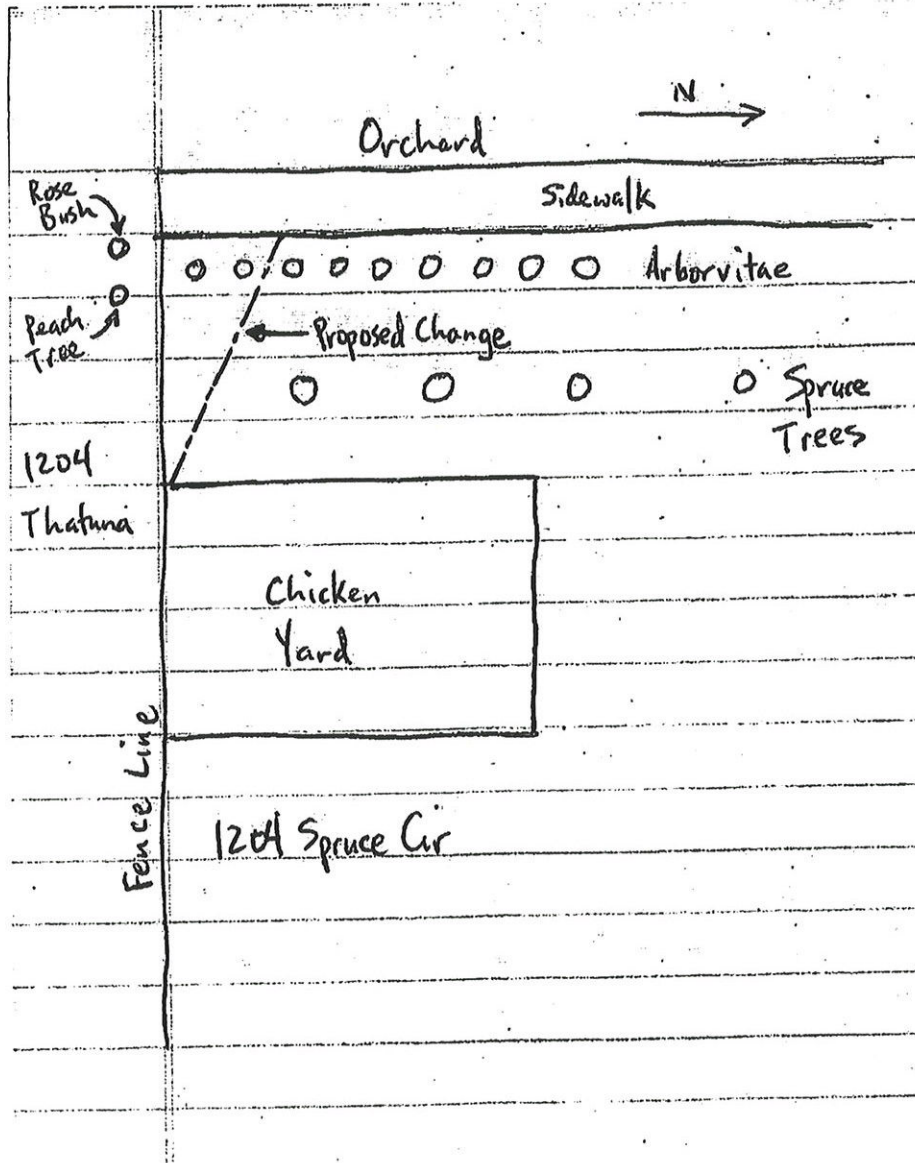 N
Orchard
Sidewalk
Rose
Bush
Arborvitae
Peach
Tree
Proposed Change
Spruce
Trees
1204
Thatuna
Chicken
Yard
Fence Line
1204 Spruce Cir